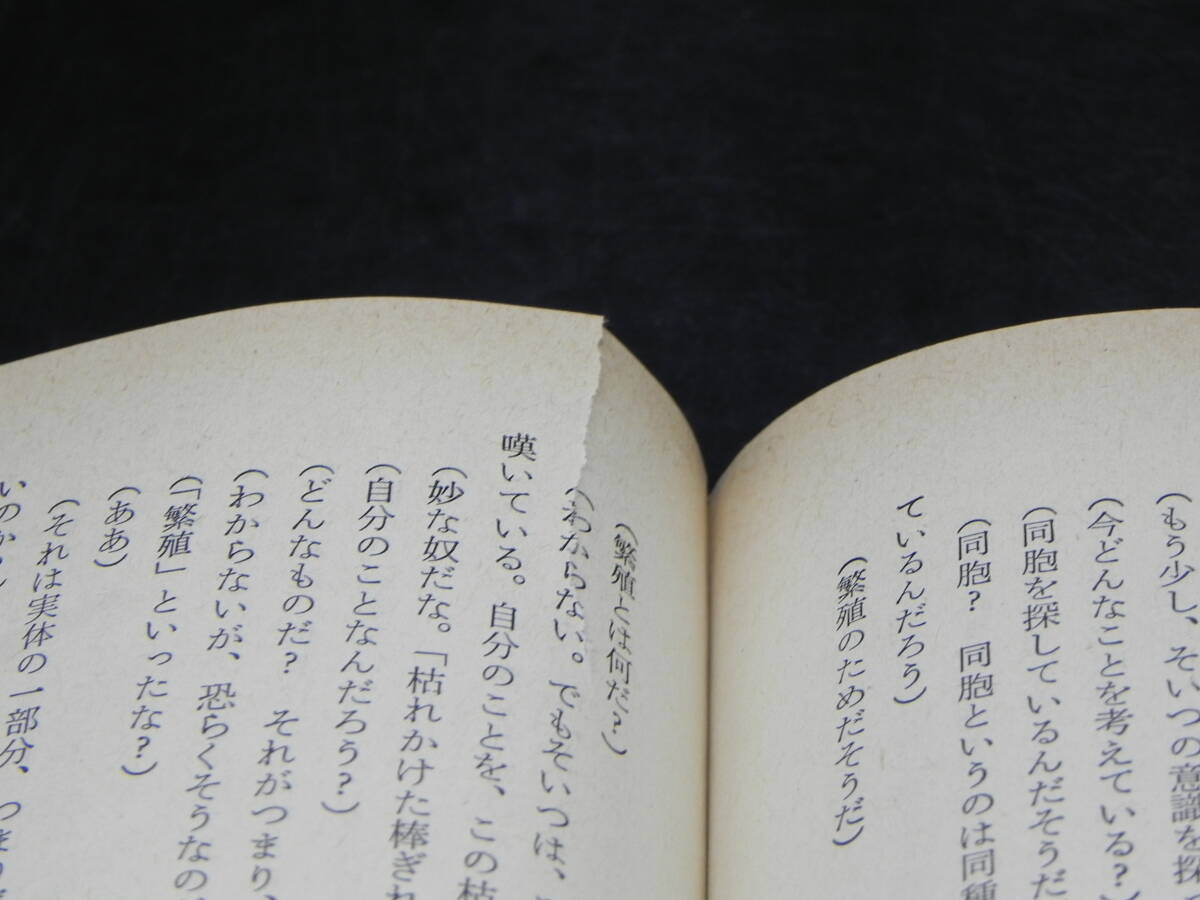 (もう少し、そいつの意識を探
(今どんなことを考えている?)
(同胞を探しているんだそうだ
(同胞? 同胞というのは同種
ているんだろう)
(繁殖のためだそうだ)
(繁殖とは何だ?)
(わからない。でもそいつは、
嘆いている。自分のことを、この枯
(妙な奴だな。「枯れかけた棒ぎれ
(自分のことなんだろう?)
(どんなものだ? それがつまり、
(わからないが、恐らくそうなの
(「繁殖」といったな?)
(ああ)
(それは実体の一部分、つまり
いのか